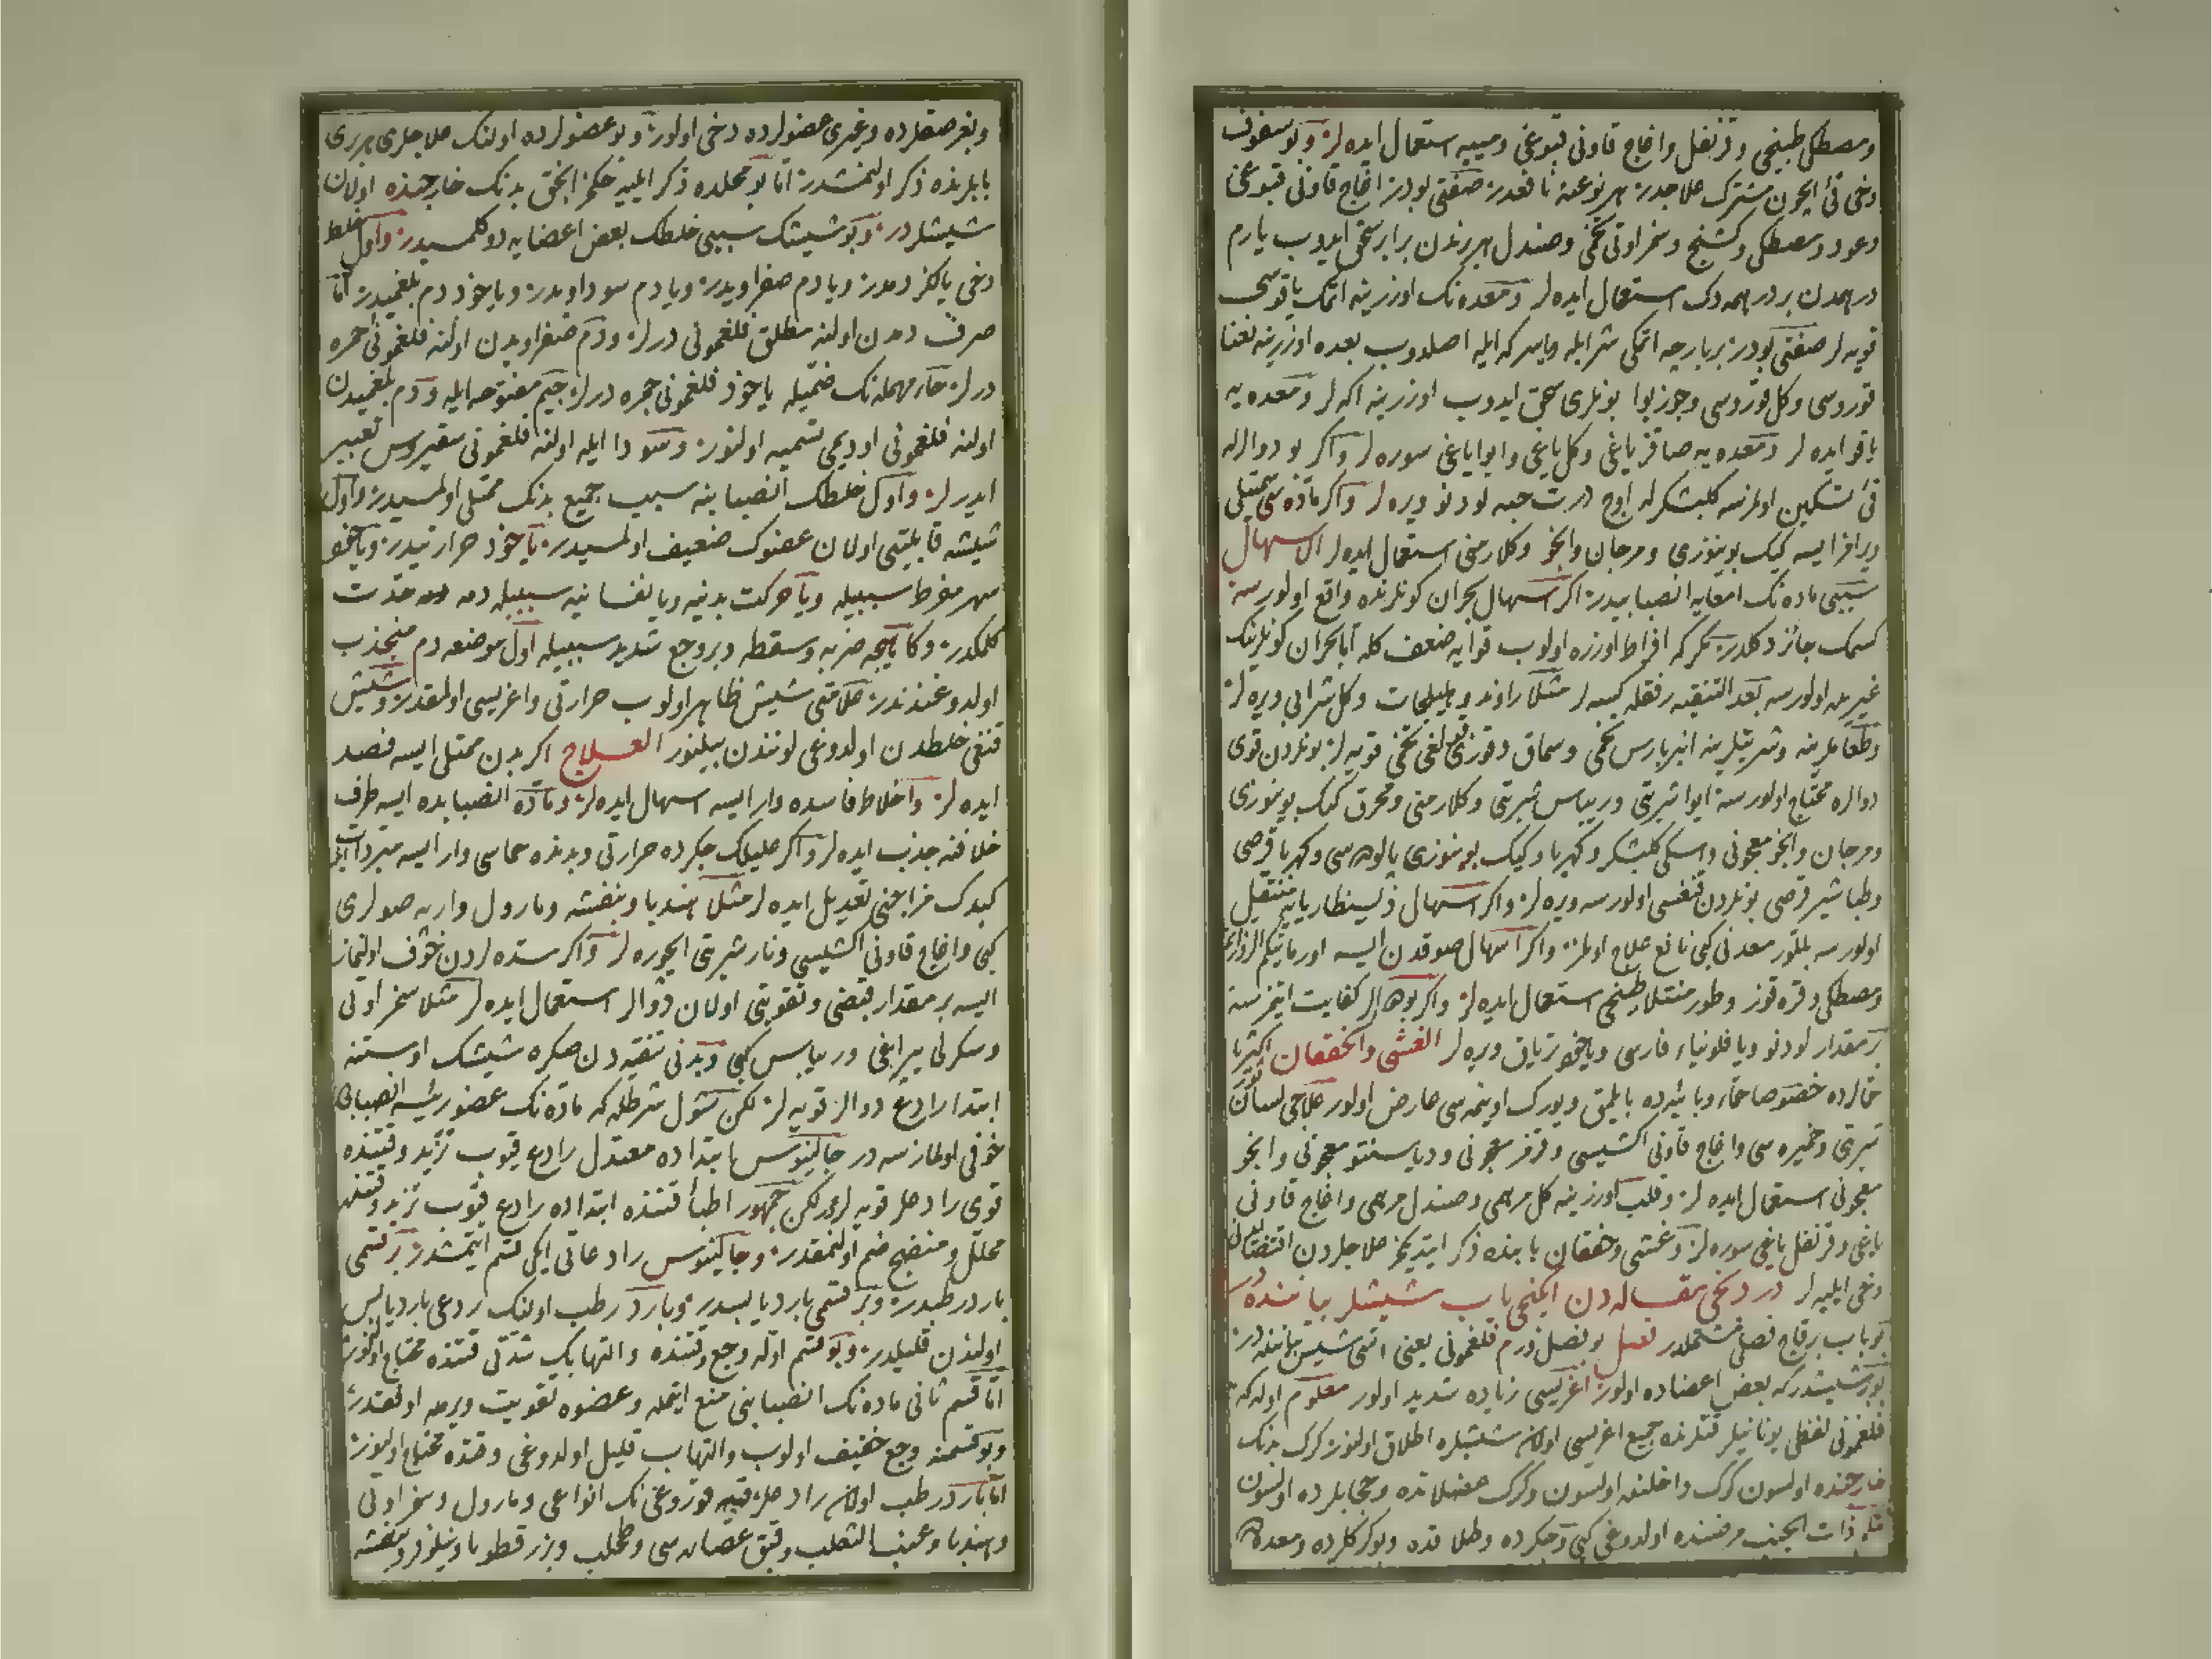 ومصطکی طبیخی وقرنفل واغاج قاونی قبوغی ومیبه استعمال ایده لر وبو سفوف
دخی قئ ایچون مشترک علاجدر هر نوعنه نافعدر صفتی بودر اغاج قاونی قبوغی
وعود ومصطکی وکشنیج وسمزاوتی تخمی وصندل هر برندن برابر سحق ایدوب یارم
درهمدن بر درهمه دک استعمال ایده لر ومعده نک اوزرینه اتمک یاقوسی
قویه لر صفتی بودر بر پارچه اتمکی شرابله ویا سرکه ایله اصلدوب بعده اوزرینه نعنا
قوروسی وکل قوروسی وجوز بوا بونلری سحق ایدوب اوزرینه اکه لر ومعده یه
یاقو ایده لر ومعده یه صاقز یاغی وکل یاغی وایوا یاغی سوره لر واکر بو دوالرله
قئ تسکین اولمزسه کلبشکرله اوج درت حبه لودنو ویره لر واکر ماده سی
ویرافزا ایسه کیک بوینوزی ومرجان وانجو وکلارمنی استعمال ایده لر الاسهال
سببی ماده نک امعایه انصبابیدر اکر اسهال بحران کونلرنده واقع اولورسه
کسمک جائز دکلدر مکر که افراط اوزره اولوب قوایه ضعف کله اما بحران کونلرینک
غیریده اولورسه بعد التنقیه رفقله کسه لر مثلا راوند وهلیلجات وکل شرابی ویره لر
وطعاملرینه وشربتلرینه انبرباریس تخمی وسماق وقوزی قولاغی تخمی قویه لر بونلردن قوی
دوالره محتاج اولورسه ایوا شربتی وریباس شربتی وکلارمنی ومحرق کیک بوینوزی
ومرجان وانجو معجونی واسکی کلبشکر وکهربا وکیک بوینوزی پالوده سی وکهربا قرصی
وطباشیر قرصی بونلردن قنغیسی اولورسه ویره لر واکر اسهال ذیسنطاریایه منتقل
اولورسه بللور معدنی کبی نافع علاج اولمز واکر اسهال صوقدن ایسه
ومصطکی وقره قوز وطورمنتلا طبیخی استعمال ایده لر واکر بو دوالر کفایت ایتمزسه
بر مقدار لودنو ویا فلونیاء فارسی ویاخود تریاق ویره لر الغشی والخفقان اکثریا
حمالرده خصوصا حماء وبائیده بایلمق ویورک اوینمه سی عارض اولور علاجی لسان ثور
شربتی وخمیره سی واغاج قاونی اکشیسی وقرمز معجونی ودیاسنتو معجونی وانجو
معجونی استعمال ایده لر وقلب اوزرینه کل مرهمی وصندل مرهمی واغاج قاونی
یاغی وقرنفل یاغی سوره لر وغشی وخفقان بابنده ذکر ایتدیکمز علاجلردن اقتضا ایدنی
دخی ایلیه لر دردنجی مقاله دن ایکنجی باب شیشلر بیاننده در
بو باب بر قاج فصلی مشتملدر فصل بو فصل ورم فلغمونی یعنی اتی شیش بیاننده در
بو بر شیشدر که بعض اعضاده اولور اغریسی زیاده شدید اولور معلوم اوله که
فلغمونی لفظی یونانیلر قتلرنده جمیع اغریسی اولان شیشلره اطلاق اولنور کرک بدنک
خارجنده اولسون کرک داخلنده اولسون وکرک عضلاتده وحجابلرده اولسون
مثلا ذات الجنب مرضنده اولدوغی کبی وجکرده وطلاقده وبوکرکلرده ومعده ده
وبغرصقلرده وغیری عضولرده دخی اولور وبو عضولرده اولنک علاجلری هر بری
بابلرنده ذکر اولنمشدر اما بو محلده ذکر ایلیه جکمز انجق بدنک خارجنده اولان
شیشلردر وبو شیشک سببی خلطک بعض اعضایه دوکلمسیدر واول خلط
دخی یالکز دمدر ویا دم صفراویدر ویا دم سوداویدر ویاخود دم بلغمیدر اما
صرف دمدن اولنه مطلق فلغمونی درلر ودم صفراویدن اولنه فلغمونی حمره
درلر حاء مهمله نک ضمیله یاخود فلغمونی جمره درلر جیم مفتوحه ایله ودم بلغمیدن
اولنه فلغمونی اودیمی تسمیه اولنور وسودا ایله اولنه فلغمونی سقیروس تعبیر
ایدرلر واول خلطک انصبابنه سبب جمیع بدنک ممتلی اولمسیدر واول
شیشه قابلیتی اولان عضوک ضعیف اولمسیدر یاخود حرارتیدر ویاخود
سهر مفرط سببیله ویا حرکت بدنیه ویا نفسانیه سببیله دمه حدت
کلمکدر وکاهیجه ضربه وسقطه وبر وجع شدید سببیله اول موضعه دم منجذب
اولدوغندندر علامتی شیش ظاهر اولوب حرارتی واغریسی اولمقدر وشیش
قنغی خلطدن اولدوغی لونندن بیلنور العلاج اکر بدن ممتلی ایسه فصد
ایده لر واخلاط فاسده وار ایسه اسهال ایده لر وماده انصبابده ایسه طرف
خلافنه جذب ایده لر واکر علیلک جکرده حرارتی وبدنده حماسی وار ایسه مبردات ایله
کبدک مزاجنی تعدیل ایده لر مثلا هندبا وبنفشه ومارول وارپه صولری
کبی واغاج قاونی اکشیسی ونار شربتی ایچوره لر واکر سده لردن خوف اولنماز
ایسه بر مقدار قبضی وتقویتی اولان دوالر استعمال ایده لر مثلا سمزاوتی
وسکرلی پیراغی وریباس کبی وبدنی تنقیه دن صکره شیشک اوستنه
ابتدا رادع دوالر قویه لر لکن شول شرطله که ماده نک عضو رئیسه انصبابی
خوفی اولمازسه در جالینوس ابتداده معتدل رادع قیوب تزید وقتنده
قوی رادعلر قویه لر دیر لکن جمهور اطبا قتنده ابتداده رادع قیوب تزید وقتنده
محلل ومنضج ضم اولنمقدر وجالینوس رادعاتی ایکی قسم ایتمشدر بر قسمی
بارد رطبدر وبر قسمی بارد یابسدر وبارد رطب اولنک ردعی بارد یابس
اولندن قلیلدر وبو قسم اوله وجع وقتنده والتهابک شدتی قتنده محتاج اولنور
اما قسم ثانی ماده نک انصبابنی منع ایتمله وعضوه تقویت ویرمه اولمقدر
وبو قسمنه وجع خفیف اولوب والتهاب قلیل اولدوغی وقتده محتاج اولنور
اما بارد رطب اولان رادعلر قبه قوروغی نک انواعی ومارول وسمزاوتی
وهندبا وعنب الثعلب وقیق عصاره سی وطحلب وبزر قطونا ونیلوفر وبنفشه